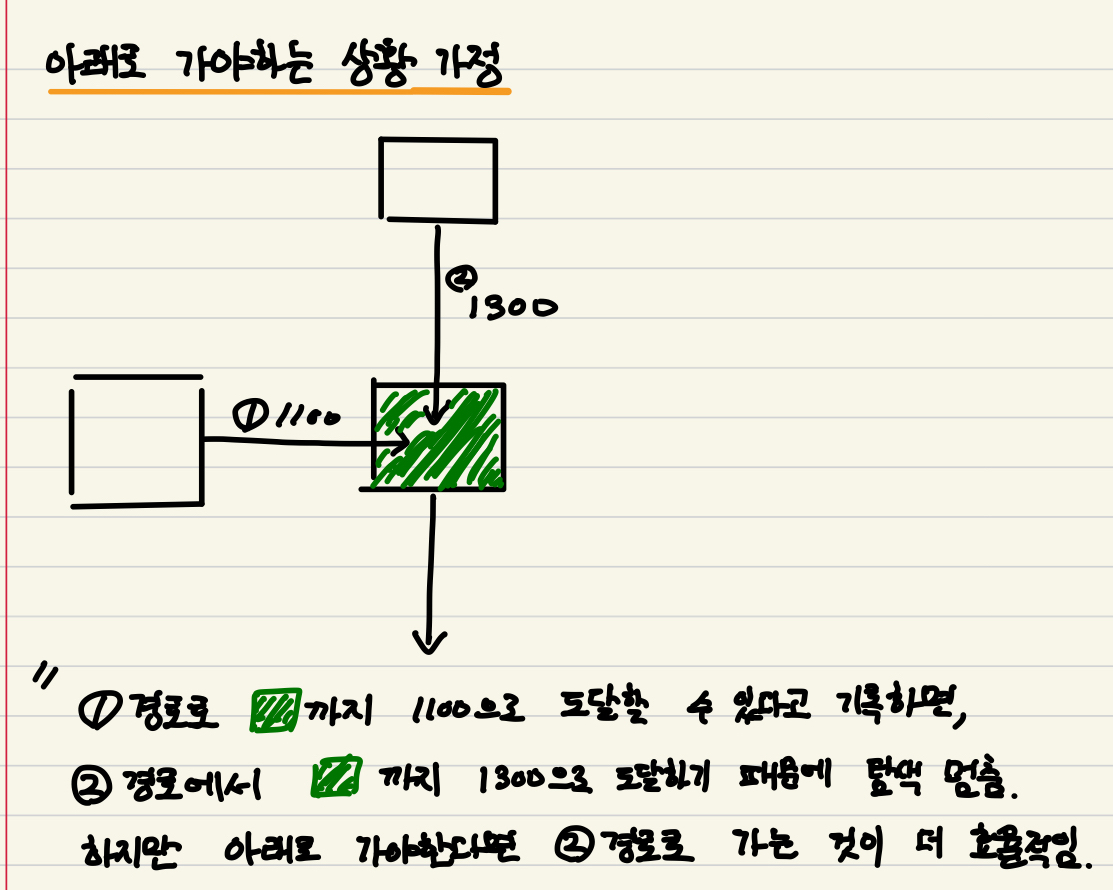 아래로 가야하는 상황 가정
②
1300
① 1100
" ① 경로로 까지 1100으로 도달할 수 있다고 기록하면,
② 경로에서 까지 1300으로 도달하기 때문에 탐색 멈춤.
하지만 아래로 가야한다면 ② 경로로 가는 것이 더 효율적임.